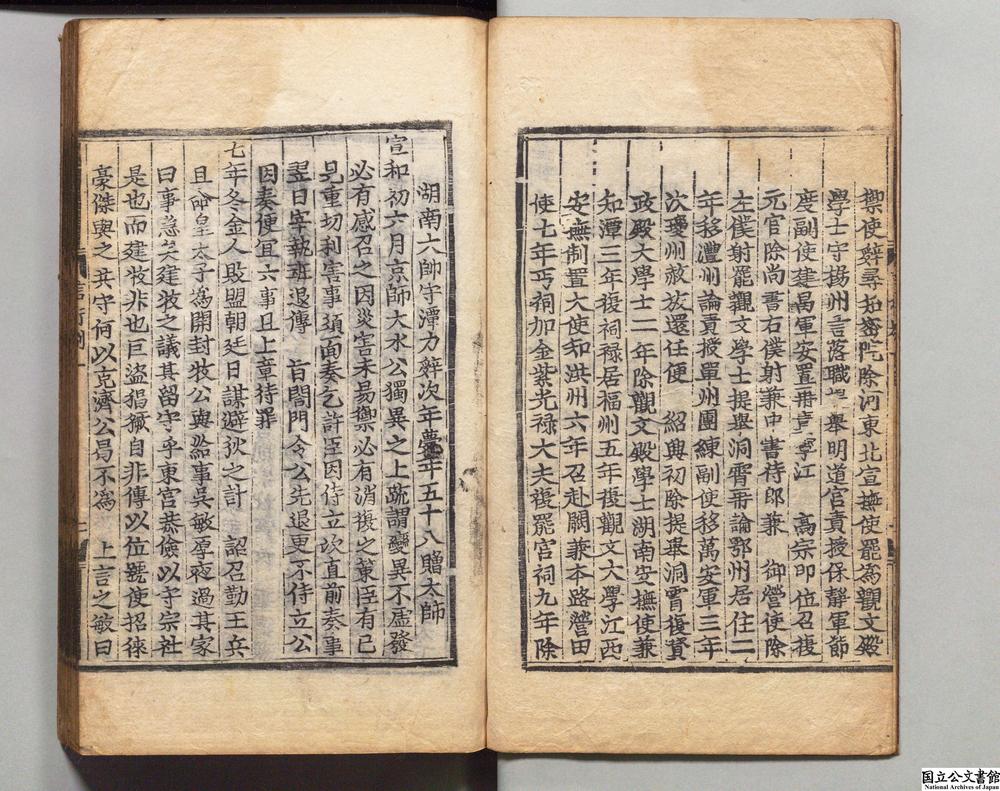 禦使辭尋知密院除河東北宣撫使罷為觀文殿
學士守揚州言落職 舉明道宮責授保靜軍節
度副使建昌軍安置再 寧江 高宗即位召復
元官除尚書右僕射兼中書侍郎兼 御營使除
左僕射罷觀文學士提舉洞霄再論鄂州居住二
年移澧州論責授單州團練副使移萬安軍三年
次瓊州赦放還任便 紹興初除提舉洞霄復資
政殿大學士二年除觀文殿學士湖南安撫使兼
知潭三年復祠祿居福州五年復觀文大學江西
安撫制置大使知洪州六年召赴闕兼本路營田
使七年丐祠加金紫光祿大夫復罷宮祠九年除
湖南大帥守潭力辭次年薨年五十八贈太師
宣和初六月京師大水公獨異之上疏謂變異不虛發
必有感召之因災害未易禦必有消復之策臣有已
見重切利害事須面奏乞許臣因侍立次直前奏事
翌日宰執班退傳 旨閤門令公先退更不侍立公
因奏便宜六事且上章待罪
七年冬金人敗盟朝廷日謀避狄之計 詔召勤王兵
且命皇太子為開封牧公與給事吳敏厚夜過其家
曰事急矣建牧之議其留守乎東宮恭儉以守宗社
是也而建牧非也巨盜猖獗自非傳以位號使招徠
豪傑與之共守何以克濟公曷不為 上言之敏曰
国立公文書館
National Archives of Japan